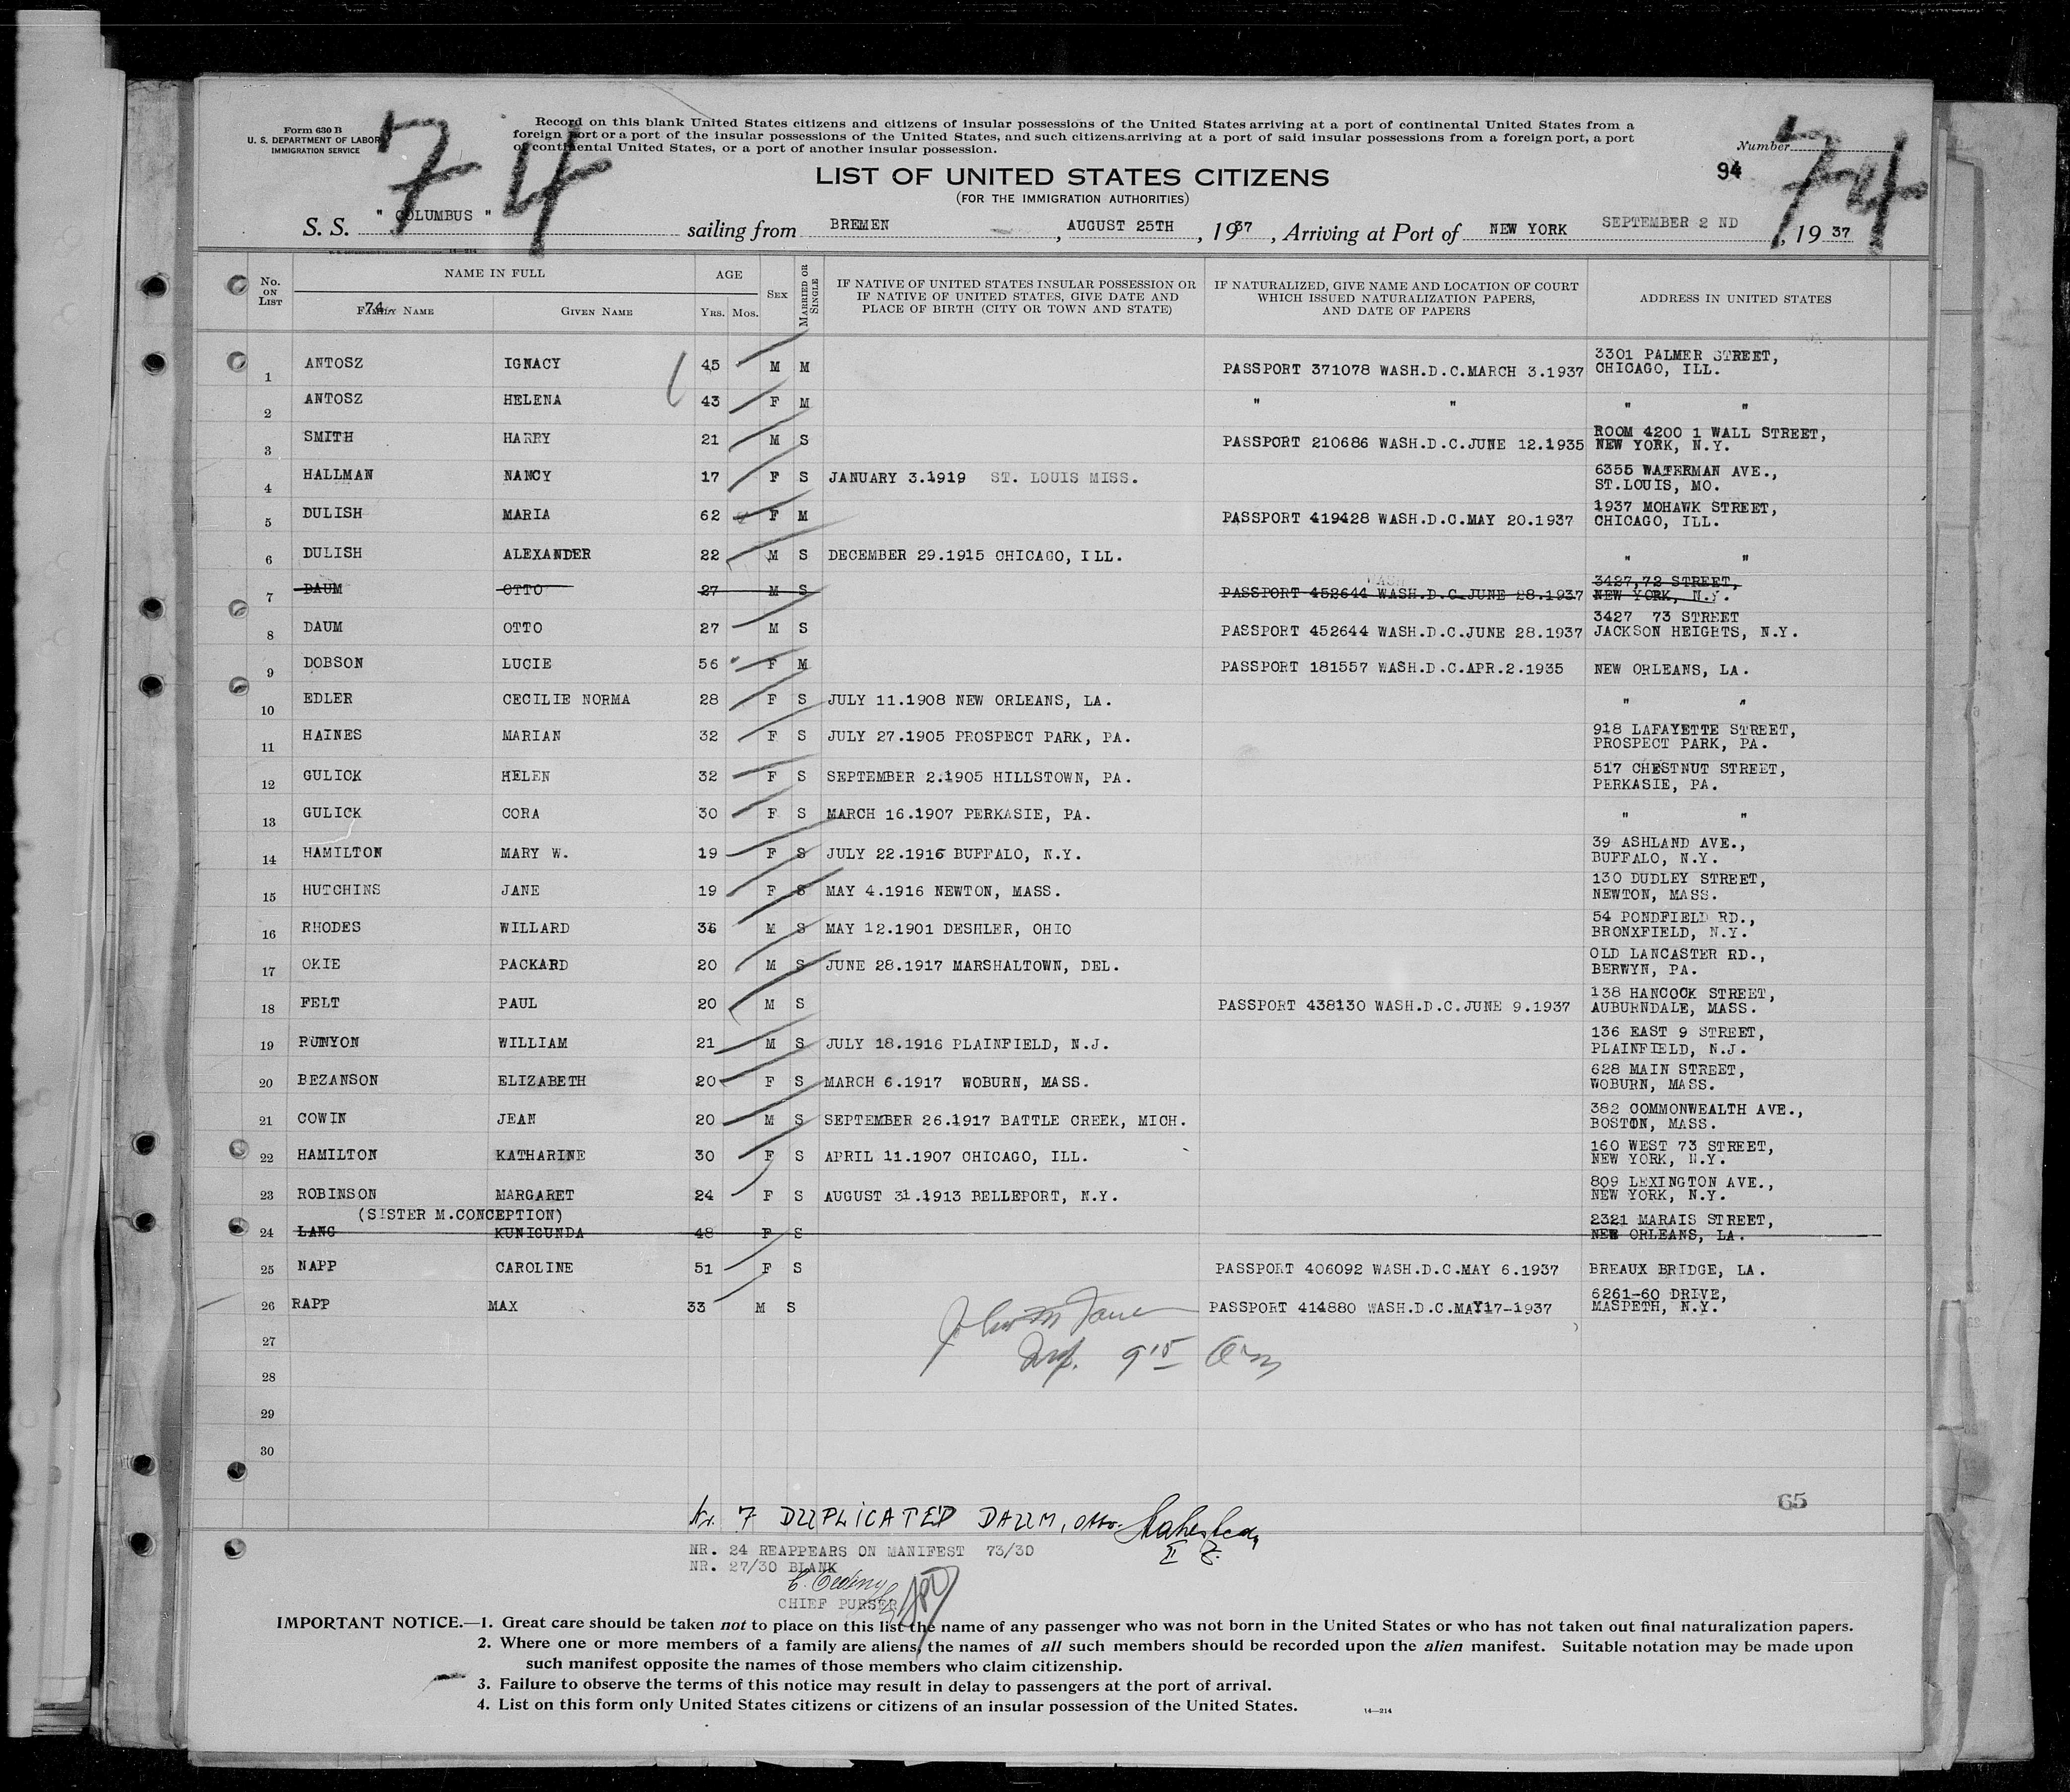 Form 630 B
U. S. DEPARTMENT OF LABOR
IMMIGRATION SERVICE
74
Record on this blank United States citizens and citizens of insular possessions of the United States arriving at a port of continental United States from a
foreign port or a port of the insular possessions of the United States, and such citizens arriving at a port of said insular possessions from a foreign port, a port
of continental United States, or a port of another insular possession.
Number
94
74
LIST OF UNITED STATES CITIZENS
(FOR THE IMMIGRATION AUTHORITIES)
S. S. " COLUMBUS " sailing from BREMEN, AUGUST 25TH, 1937, Arriving at Port of NEW YORK SEPTEMBER 2 ND, 19 37
No. ON LIST NAME IN FULL AGE SEX MARRIED OR SINGLE IF NATIVE OF UNITED STATES INSULAR POSSESSION OR IF NATIVE OF UNITED STATES, GIVE DATE AND PLACE OF BIRTH (CITY OR TOWN AND STATE) IF NATURALIZED, GIVE NAME AND LOCATION OF COURT WHICH ISSUED NATURALIZATION PAPERS, AND DATE OF PAPERS ADDRESS IN UNITED STATES
74
FAMILY NAME GIVEN NAME YRS. MOS.
1 ANTOSZ IGNACY 45 M M PASSPORT 371078 WASH.D.C.MARCH 3.1937 3301 PALMER STREET, CHICAGO, ILL.
2 ANTOSZ HELENA 43 F M " " " "
3 SMITH HARRY 21 M S PASSPORT 210686 WASH.D.C.JUNE 12.1935 ROOM 4200 1 WALL STREET, NEW YORK, N.Y.
4 HALLMAN NANCY 17 F S JANUARY 3.1919 ST. LOUIS MISS. 6355 WATERMAN AVE., ST.LOUIS, MO.
5 DULISH MARIA 62 F M PASSPORT 419428 WASH.D.C.MAY 20.1937 1937 MOHAWK STREET, CHICAGO, ILL.
6 DULISH ALEXANDER 22 M S DECEMBER 29.1915 CHICAGO, ILL. " "
7 DAUM OTTO 27 M S PASSPORT 452644 WASH.D.C.JUNE 28.1937 3427,72 STREET, NEW YORK, N.Y.
8 DAUM OTTO 27 M S PASSPORT 452644 WASH.D.C.JUNE 28.1937 3427 73 STREET JACKSON HEIGHTS, N.Y.
9 DOBSON LUCIE 56 F M PASSPORT 181557 WASH.D.C.APR.2.1935 NEW ORLEANS, LA.
10 EDLER CECILIE NORMA 28 F S JULY 11.1908 NEW ORLEANS, LA. " "
11 HAINES MARIAN 32 F S JULY 27.1905 PROSPECT PARK, PA. 918 LAFAYETTE STREET, PROSPECT PARK, PA.
12 GULICK HELEN 32 F S SEPTEMBER 2.1905 HILLSTOWN, PA. 517 CHESTNUT STREET, PERKASIE, PA.
13 GULICK CORA 30 F S MARCH 16.1907 PERKASIE, PA. " "
14 HAMILTON MARY W. 19 F S JULY 22.1916 BUFFALO, N.Y. 39 ASHLAND AVE., BUFFALO, N.Y.
15 HUTCHINS JANE 19 F S MAY 4.1916 NEWTON, MASS. 130 DUDLEY STREET, NEWTON, MASS.
16 RHODES WILLARD 36 M S MAY 12.1901 DESHLER, OHIO 54 PONDFIELD RD., BRONXFIELD, N.Y.
17 OKIE PACKARD 20 M S JUNE 28.1917 MARSHALTOWN, DEL. OLD LANCASTER RD., BERWYN, PA.
18 FELT PAUL 20 M S PASSPORT 438130 WASH.D.C.JUNE 9.1937 138 HANCOCK STREET, AUBURNDALE, MASS.
19 RUNYON WILLIAM 21 M S JULY 18.1916 PLAINFIELD, N.J. 136 EAST 9 STREET, PLAINFIELD, N.J.
20 BEZANSON ELIZABETH 20 F S MARCH 6.1917 WOBURN, MASS. 628 MAIN STREET, WOBURN, MASS.
21 COWIN JEAN 20 M S SEPTEMBER 26.1917 BATTLE CREEK, MICH. 382 COMMONWEALTH AVE., BOSTON, MASS.
22 HAMILTON KATHARINE 30 F S APRIL 11.1907 CHICAGO, ILL. 160 WEST 73 STREET, NEW YORK, N.Y.
23 ROBINSON MARGARET 24 F S AUGUST 31.1913 BELLEPORT, N.Y. 809 LEXINGTON AVE., NEW YORK, N.Y.
(SISTER M.CONCEPTION)
24 LANG KUNIGUNDA 48 F S 2321 MARAIS STREET, NEW ORLEANS, LA.
25 NAPP CAROLINE 51 F S PASSPORT 406092 WASH.D.C.MAY 6.1937 BREAUX BRIDGE, LA.
26 RAPP MAX 33 M S PASSPORT 414880 WASH.D.C.MAY17-1937 6261-60 DRIVE, MASPETH, N.Y.
27
28
29
30
65
Nr. 7 DUPLICATED DAUM, Otto.
NR. 24 REAPPEARS ON MANIFEST 73/30
NR. 27/30 BLANK
CHIEF PURSER
IMPORTANT NOTICE.—1. Great care should be taken not to place on this list the name of any passenger who was not born in the United States or who has not taken out final naturalization papers.
2. Where one or more members of a family are aliens, the names of all such members should be recorded upon the alien manifest. Suitable notation may be made upon
such manifest opposite the names of those members who claim citizenship.
3. Failure to observe the terms of this notice may result in delay to passengers at the port of arrival.
4. List on this form only United States citizens or citizens of an insular possession of the United States.
14—214